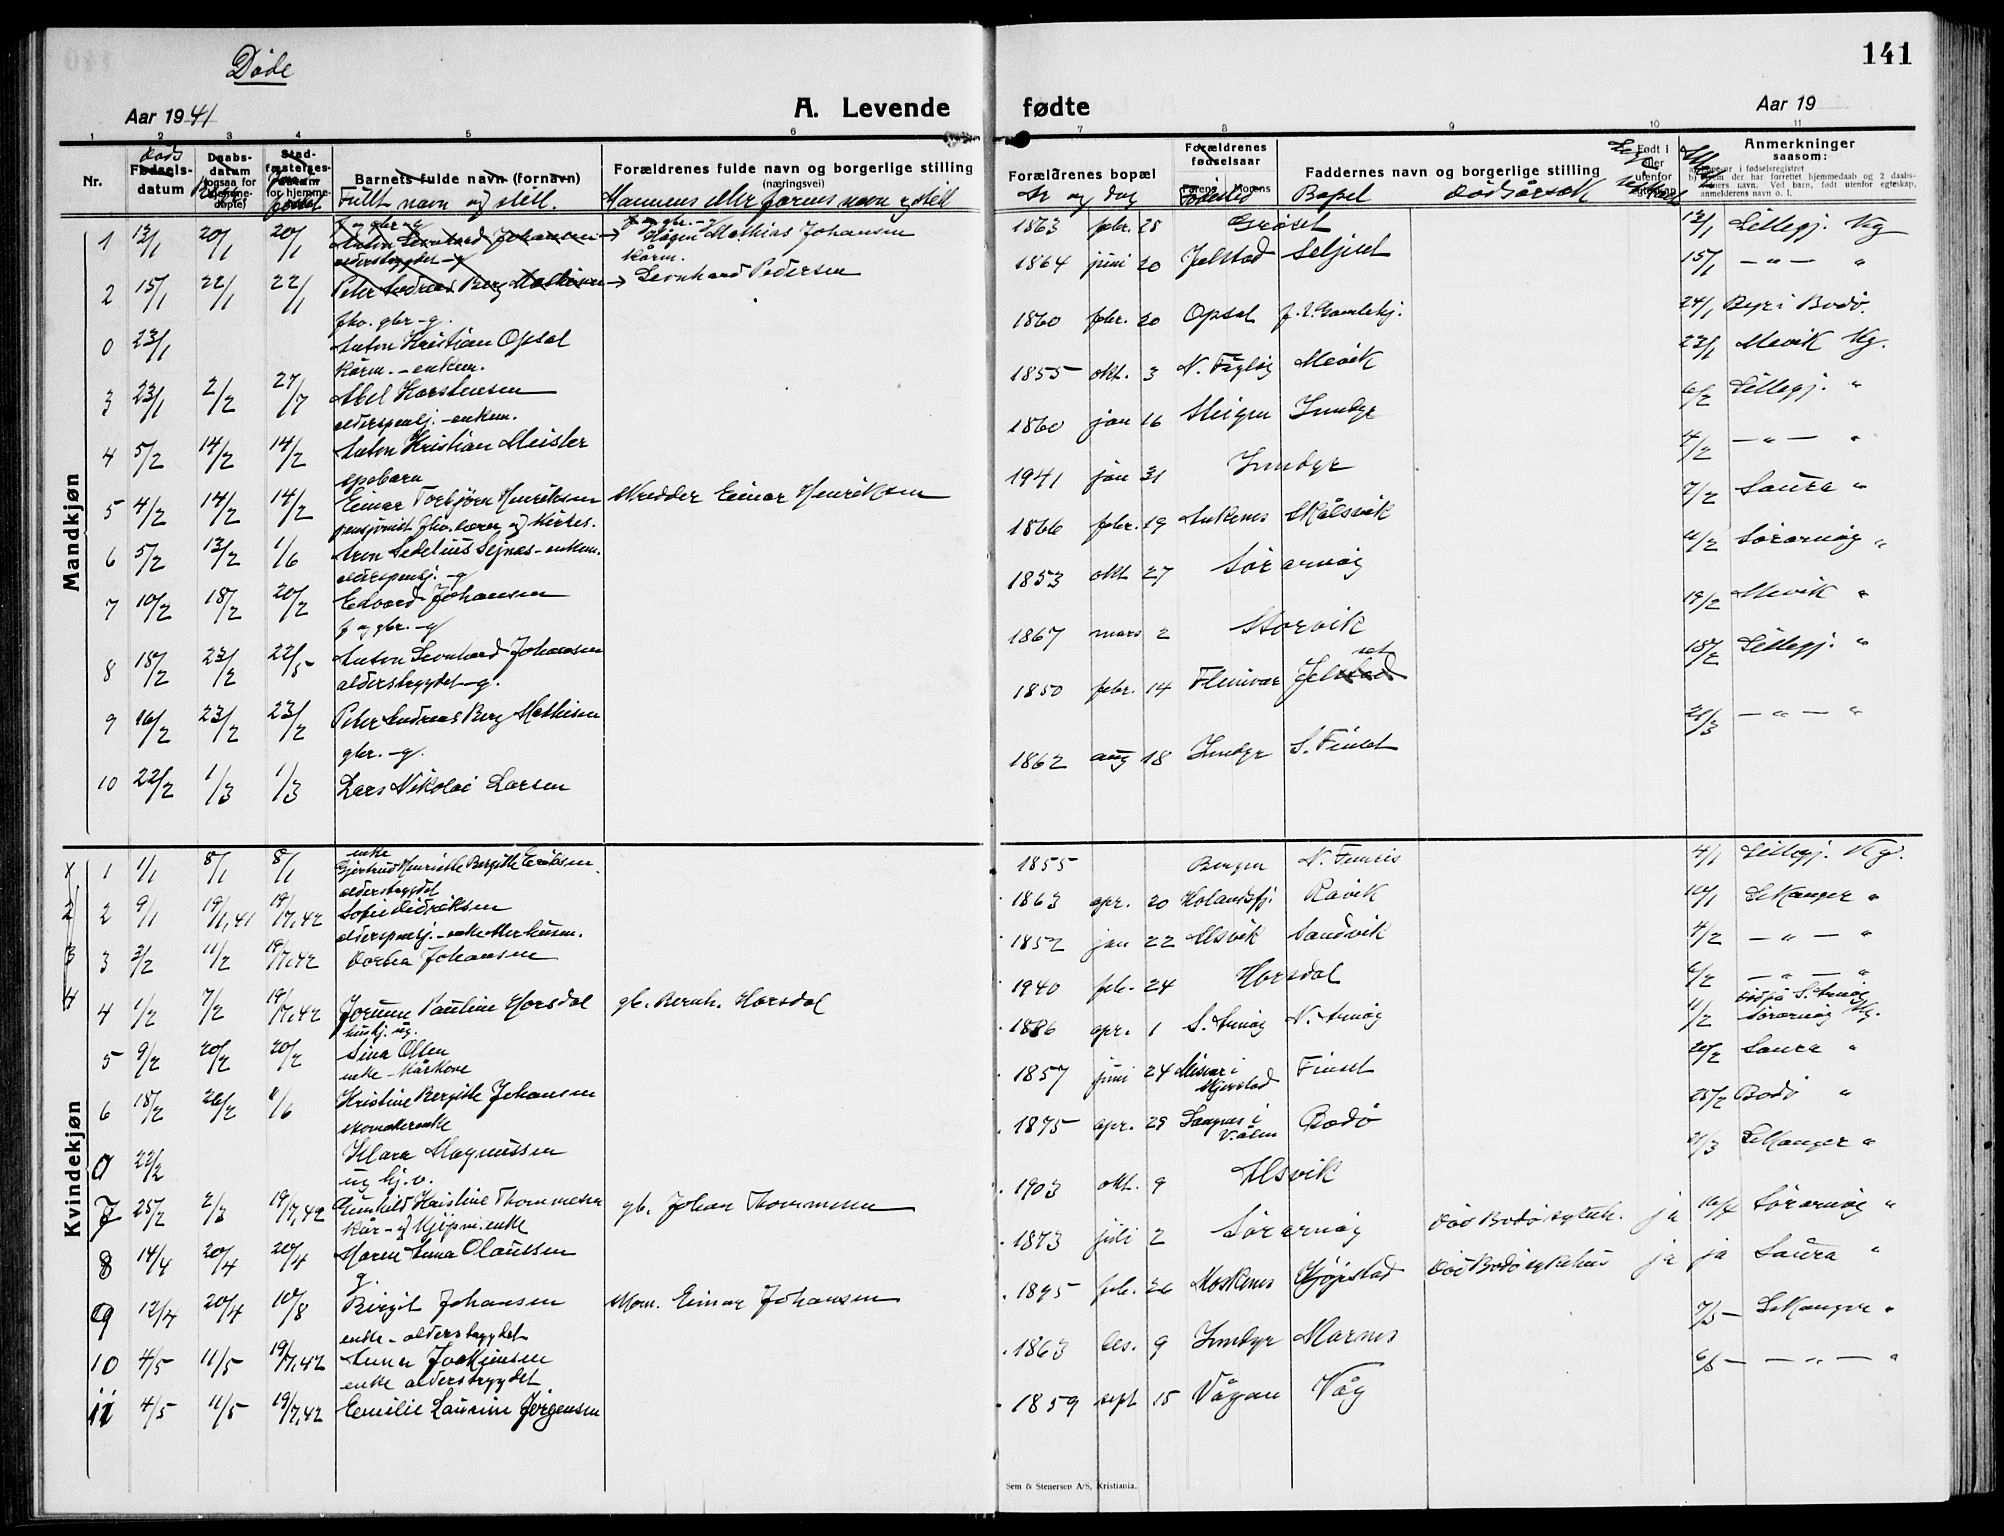 Døde
141
Aar 1941
A. Levende fødte
Aar 19
1 2 3 4 5 6 7 8 9 10 11
Nr.
Døds
Fødsels-
datum
Daabs-
datum
(ogsaa for
hjemme-
døpte)
Stad-
fæstelses-
datum
for hjemme-
døpte
Barnets fulde navn (fornavn)
Fullt navn og still.
Forældrenes fulde navn og borgerlige stilling
(næringsvei)
Mannens eller farens navn og still
Forældrenes bopæl
År og dag
Forældrenes
fødselsaar
Farens Morens
Fødested
Faddernes navn og borgerlige stilling
Bopel Dødsårsak
Født i
eller
utenfor
egteskap
Anmerkninger
saasom:
Mandkjøn
1 13/1 20/1 20/1 f og gbr - g Anton Leonhard Johansen → f og gbr. - g Hågen Mathias Johansen 1863 febr. 28 Grøset 13/1 Lillegj. Kg
2 15/1 22/1 22/1 alderstrygdet - g Peter Andreas Berg Mathisen → kårm. Leonhard Pedersen 1864 juni 20 Jelstad Seljeset 15/1 — " — "
0 23/1 fho. gbr - g. Anton Kristian Opsal 1860 febr. 20 Opsal f. t. Gamlekj. 24/1 Byr i Bodø.
3 23/1 2/2 27/7 Kårm. - enkem. Abel Karstensen 1855 okt. 3 N. Fugløy Mevik 23/1 Mevik Kg.
4 5/2 14/2 14/2 alderspensj. - enkem. Anton Kristian Meisler 1860 jan 16 Steigen Inndyr 6/2 Lillegj. "
5 4/2 14/2 14/2 spebarn Einar Torbjørn Henriksen Skredder Einar Henriksen 1941 jan 31 Inndyr 4/2 — " — "
6 5/2 13/2 1/6 pensjonist fho. lærer og kirkes. Aron Sedelius Sejnæs - enkem. 1866 febr. 19 Ankenes Skålsvik 7/2 Saura "
7 10/2 18/2 20/2 alderspensj. - g Edvard Johansen 1853 okt 27 Sørarnøy 11/2 Sørarnøy "
8 18/2 23/2 22/5 f og gbr. - g Anton Leonhard Johansen 1867 mars 2 Storvik 19/2 Mevik "
9 16/2 23/2 23/2 alderstrygdet - g. Peter Andreas Berg Mathisen 1850 febr. 14 Fleinvær Jelstad set 18/2 Lillegj. "
10 22/2 1/3 1/3 gbr. - g. Lars Nikolai Larsen 1862 aug 18 Inndyr S. Finset 21/3 — " — "
Kvindekjøn
1 1/1 8/1 8/1 enke Gjertrud Henriette Bergitte Eriksen. 1855 Bergen N. Finnes 4/1 Lillegj. Kg.
2 9/1 19/1,41 19/7,42 alderstrygdet Sofie Didriksen 1863 apr. 20 Holandsfj. Råvik 10/1 Lekanger "
3 3/2 11/2 19/7,42 alderspensj. - enke etter husm. Dorthea Johansen 1852 jan 22 Alsvik Sandvik 4/2 — " — "
4 1/2 7/2 19/7,42 Jorunn Pauline Horsdal gb. Bernh. Horsdal 1940 feb. 24 Horsdal 6/2 — " — "
5 9/2 20/2 20/2 hushj. ug. Sina Olsen 1886 apr. 1 S. Arnøy N. Arnøy død på S. Arnøy 11/2 Sørarnøy Kg.
6 18/2 26/2 2/6 enke - kårkone Kristine Bergitte Johansen 1857 juni 24 Misvær i Skjerstad Finset 20/2 Saura "
0 22/2 skomakerenke Klara Magnussen 1875 apr. 29 Langnes i V.ålen Bodø 25/2 Bodø "
7 25/2 2/3 19/7,42 ug hj. v. Gunhild Kristine Thommesen gb. Johan Thommesen 1903 okt. 9 Alsvik 2/3 Lekanger "
8 14/4 20/4 20/4 kår- og kjøpm. enke Maren Anna Olaussen 1873 juli 2 Sørarnøy død Bodø sykeh. ja 16/4 Sørarnøy "
9 12/4 20/4 10/8 g. Birgit Johansen Mann. Einar Johansen 1895 feb. 26 Moskenes Gjøpstad død Bodø sykehus ja ja Saura "
10 4/5 11/5 19/7,42 enke - alderstrygdet Anna Joakimsen 1863 des. 9 Inndyr Marnes 7/5 Lekanger "
11 4/5 11/5 19/7,42 enke alderstrygdet Emilie Laurine Jørgensen 1859 sept 15 Vågan Våg 6/5 — " — "
Sem & Stenersen A/S, Kristiania.